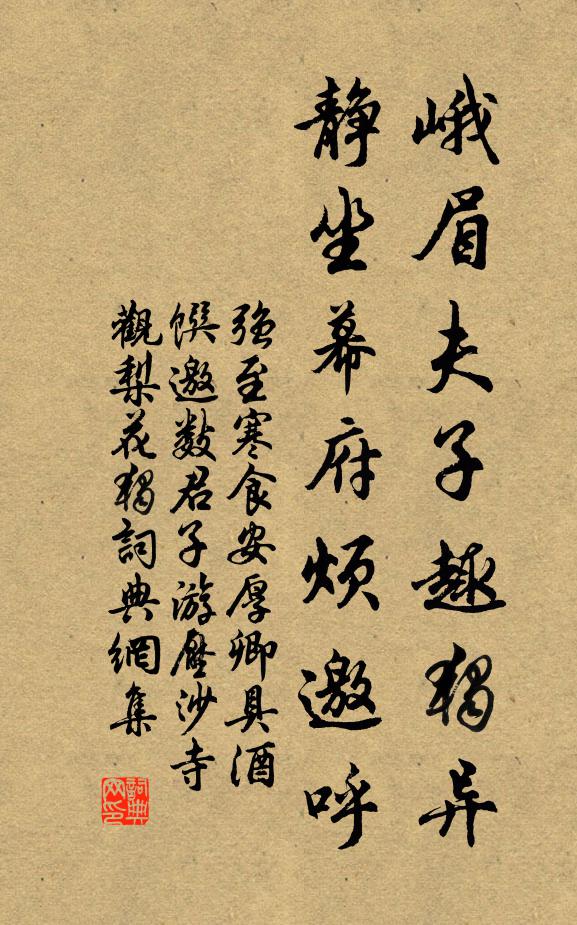 峨眉夫子趣獨异
静坐幕府煩邀呼
强至寒食安厚卿具酒
饌邀数君子游壓沙寺
觀梨花獨詞典網集
詞典
网印